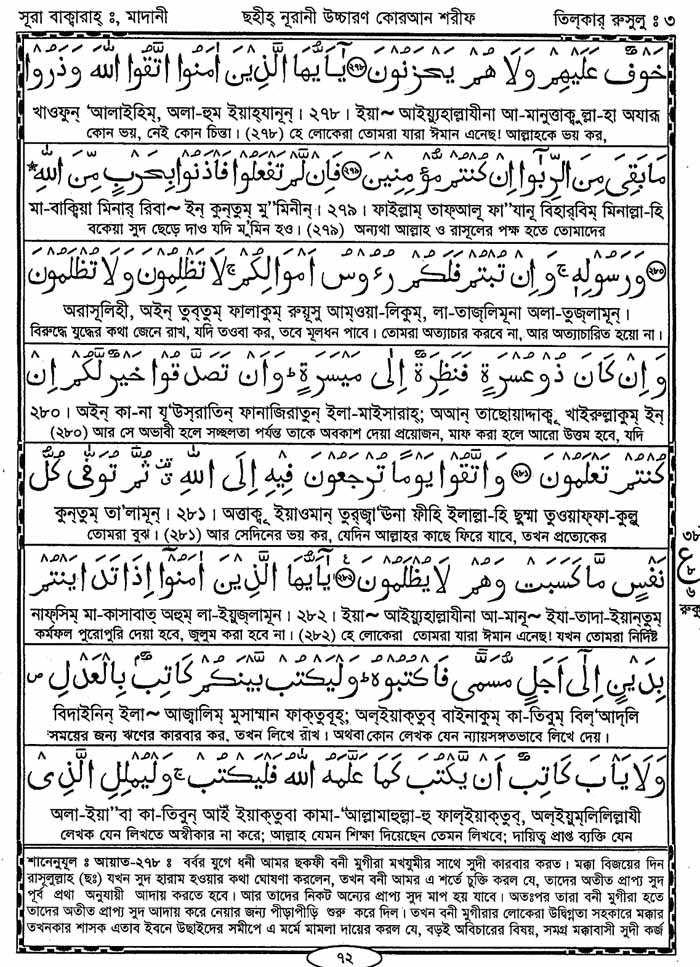 সূরা বাক্বারাহ্ ঃ, মাদানী ছহীহ্ নূরানী উচ্চারণ কোরআন শরীফ তিল্কার্ রুসুলু ঃ ৩
خَوْفٌ عَلَيْهِمْ وَلَا هُمْ يَحْزَنُوْنَ ۝٢٧٨ يٰٓاَيُّهَا الَّذِيْنَ اٰمَنُوا اتَّقُوا اللّٰهَ وَذَرُوْا
খাওফুন্ ‘আলাইহিম্, অলা-হুম্ ইয়াহ্‌যানূন্। ২৭৮। ইয়া~ আইয়্যুহাল্লাযীনা আ-মানুত্তাক্বুল্লা-হা অযারূ
কোন ভয়, নেই কোন চিন্তা। (২৭৮) হে লোকেরা তোমরা যারা ঈমান এনেছ! আল্লাহকে ভয় কর,
مَا بَقِىَ مِنَ الرِّبٰٓوا اِنْ كُنْتُمْ مُّؤْمِنِيْنَ ۝٢٧٩ فَاِنْ لَّمْ تَفْعَلُوْا فَاْذَنُوْا بِحَرْبٍ مِّنَ اللّٰهِ
মা-বাক্বিয়া মিনার্ রিবা~ ইন্ কুন্তুম্ মু”মিনীন্। ২৭৯। ফাইল্লাম্ তাফ্‘আলূ ফা”যানূ বিহার্‌বিম্ মিনাল্লা-হি
বকেয়া সুদ ছেড়ে দাও যদি মু’মিন হও। (২৭৯) অন্যথা আল্লাহ ও রাসূলের পক্ষ হতে তোমাদের
وَرَسُوْلِهٖ ج وَاِنْ تُبْتُمْ فَلَكُمْ رُءُوْسُ اَمْوَالِكُمْ ج لَا تَظْلِمُوْنَ وَلَا تُظْلَمُوْنَ ۝٢٨٠
অরাসূলিহী, অইন্ তুব্‌তুম্ ফালাকুম্ রুয়ূসু আম্‌ওয়া-লিকুম্, লা-তাজ্‌লিমূনা অলা-তুজ্‌লামূন্।
বিরুদ্ধে যুদ্ধের কথা জেনে রাখ, যদি তওবা কর, তবে মূলধন পাবে। তোমরা অত্যাচার করবে না, আর অত্যাচারিত হয়ো না।
وَاِنْ كَانَ ذُوْ عُسْرَةٍ فَنَظِرَةٌ اِلٰى مَيْسَرَةٍ ط وَاَنْ تَصَدَّقُوْا خَيْرٌ لَّكُمْ اِنْ
২৮০। অইন্ কা-না যূ‘উস্‌রাতিন্ ফানাজিরাতুন্ ইলা-মাইসারাহ্; অআন্ তাছোয়াদ্দাক্বূ খাইরুল্লাকুম্ ইন্
(২৮০) আর সে অভাবী হলে সচ্ছলতা পর্যন্ত তাকে অবকাশ দেয়া প্রয়োজন, মাফ করা হলে আরো উত্তম হবে, যদি
كُنْتُمْ تَعْلَمُوْنَ ۝٢٨١ وَاتَّقُوْا يَوْمًا تُرْجَعُوْنَ فِيْهِ اِلَى اللّٰهِ ثُمَّ تُوَفّٰى كُلُّ
কুন্তুম্ তা‘লামূন্। ২৮১। অত্তাক্বূ ইয়াওমান্ তুর্‌জ্বা‘ঊনা ফীহি ইলাল্লা-হি ছুম্মা তুওয়াফ্‌ফা-কুল্লু
তোমরা বুঝ। (২৮১) আর সেদিনের ভয় কর, যেদিন আল্লাহর কাছে ফিরে যাবে, তখন প্রত্যেকের
৩৮
ع
৮
৬
রুকু
نَفْسٍ مَّا كَسَبَتْ وَهُمْ لَا يُظْلَمُوْنَ ۝٢٨٢ يٰٓاَيُّهَا الَّذِيْنَ اٰمَنُوْٓا اِذَا تَدَايَنْتُمْ
নাফ্‌সিম্ মা-কাসাবাত্ অহুম্ লা-ইয়ুজ্‌লামূন্। ২৮২। ইয়া~ আইয়্যুহাল্লাযীনা আ-মানূ~ ইযা-তাদা-ইয়ান্‌তুম্
কর্মফল পুরোপুরি দেয়া হবে, জুলুম করা হবে না। (২৮২) হে লোকেরা তোমরা যারা ঈমান এনেছ! যখন তোমরা নির্দিষ্ট
بِدَيْنٍ اِلٰٓى اَجَلٍ مُّسَمًّى فَاكْتُبُوْهُ ط وَلْيَكْتُبْ بَّيْنَكُمْ كَاتِبٌ بِالْعَدْلِ ص
বিদাইনিন্ ইলা~ আজ্বালিম্ মুসাম্মান্ ফাক্‌তুবূহ্; অল্‌ইয়াক্‌তুব্ বাইনাকুম্ কা-তিবুম্ বিল্‘আদ্‌লি
সময়ের জন্য ঋণের কারবার কর, তখন লিখে রাখ। অথবা কোন লেখক যেন ন্যায়সঙ্গতভাবে লিখে দেয়।
وَلَا يَاْبَ كَاتِبٌ اَنْ يَّكْتُبَ كَمَا عَلَّمَهُ اللّٰهُ فَلْيَكْتُبْ ج وَلْيُمْلِلِ الَّذِىْ
অলা-ইয়া”বা কা-তিবুন্ আইঁ ইয়াক্‌তুবা কামা-‘আল্লামাহুল্লা-হু ফাল্‌ইয়াক্‌তুব্, অল্‌ইয়ুম্‌লিলিল্লাযী
লেখক যেন লিখতে অস্বীকার না করে; আল্লাহ যেমন শিক্ষা দিয়েছেন তেমন লিখবে; দায়িত্ব প্রাপ্ত ব্যক্তি যেন
শানেনুযূল ঃ আয়াত-২৭৮ ঃ বর্বর যুগে ধনী আমর ছকফী বনী মুগীরা মখযুমীর সাথে সুদী কারবার করত। মক্কা বিজয়ের দিন
রাসূলুল্লাহ (ছঃ) যখন সুদ হারাম হওয়ার কথা ঘোষণা করলেন, তখন বনী আমর এ শর্তে চুক্তি করল যে, তাদের অতীত প্রাপ্য সুদ
পূর্ব প্রথা অনুযায়ী আদায় করতে হবে। আর তাদের নিকট অন্যের প্রাপ্য সুদ মাপ হয়ে যাবে। অতঃপর তারা বনী মুগীরা হতে
তাদের অতীত প্রাপ্য সুদ আদায় করে নেয়ার জন্য পীড়াপীড়ি শুরু করে দিল। তখন বনী মুগীরার লোকেরা উদ্বিগ্নতা সহকারে মক্কার
তখনকার শাসক এতাব ইবনে উছাইদের সমীপে এ মর্মে মামলা দায়ের করল যে, বড়ই অবিচারের বিষয়, সমগ্র মক্কাবাসী সুদী কর্জ
৭২